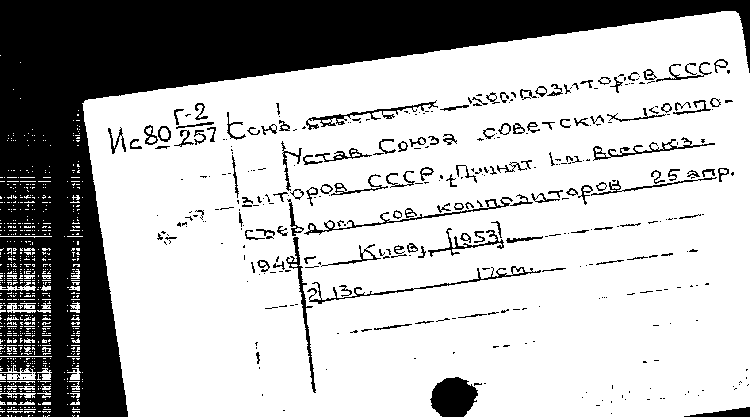 Ис80 Г-2/257 Союз советских композиторов СССР.
Устав Союза советских компо-
зиторов СССР. [Принят 1-м Всесоюз.
съездом сов. композиторов 25 апр.
1948 г. Киев, [1953].
[2] 13с. 17см.